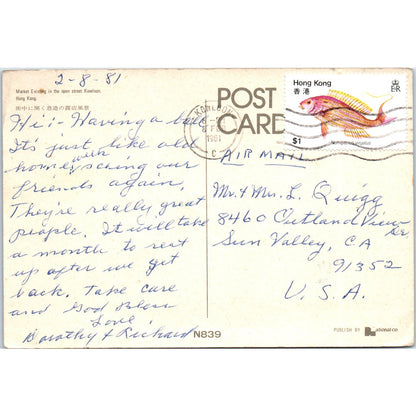 2-8-81
Market Existing in the open street Kowloon,
Hong Kong.
街中に開く香港の露店風景
Hi:- Having a ball
It's just like old
home, with seeing our
friends again,
They're really great
people. It will take
a month to rest
up after we get
back. Take care
and God Bless
Love,
Dorothy & Richard
POST
CARD
KOWLOON
1981
C
Hong Kong
香港
E II R
$1
AIR MAIL
Mr. & Mrs. L. Quigg
8460 Outland View Dr.
Sun Valley, CA
91352
U. S. A.
N839
PUBLISH BY
national co